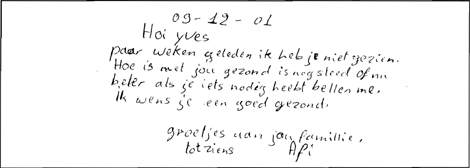 09-12-01
Hoi yves
paar weken geleden ik heb je niet gezien.
Hoe is met jou gezond is nog steed of nu
beter als je iets nodig heebt bellen me.
ik wens je een goed gezond.
groetjes van jou famillie.
tot ziens Afi